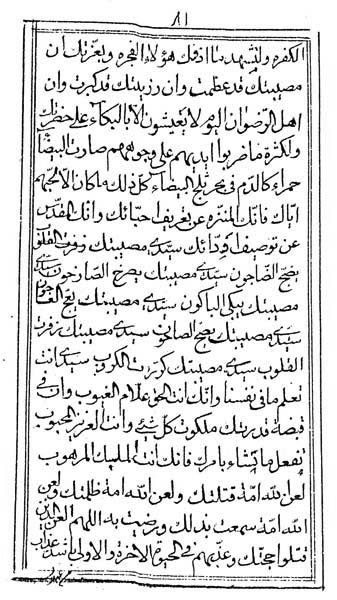 ٨١
الكفره ولتشهدنا اذقك هؤلاء الفجره وبعزتك ان
مصيبتك قد عظمت وان رزيتك قد كبرت وان
اهل الرضوان اليوم لا يعيشون الا بالبكاء على حضرتك
ولكثرة ما ضربوا ايديهم على وجوههم صارت البيضاء
حمراء كالدم في بحر ثلج البيضاء كل ذلك ما كان الا لحبهم
اياك فانك المتنزه عن تعريف احبائك وانك المقدس
عن توصيف اودائك سيدي مصيبتك زفرت القلوب
يضج الضاجون سيدي مصيبتك يصرخ الصارخون سيدي
مصيبتك يبكي الباكون سيدي مصيبتك يعج العاجون
سيدي مصيبتك يضج الصائحون سيدي مصيبتك زفرت
القلوب سيدي مصيبتك كربت الكروب سيدي انت
تعلم ما في نفسنا وانك انت الحق علام الغيوب وان في
قبضة قدرتك ملكوت كل شئ وانت العزيز المحبوب
تفعل ما تشاء بامرك فانك انت المليك المرهوب
لعن الله امة قتلتك ولعن الله امة ظلمتك ولعن
الله امة سمعت بذلك ورضيت به اللهم العن الذين
قتلوا حجتك وعذبهم في الحيوة الاخرة والاولى باشد عذاب